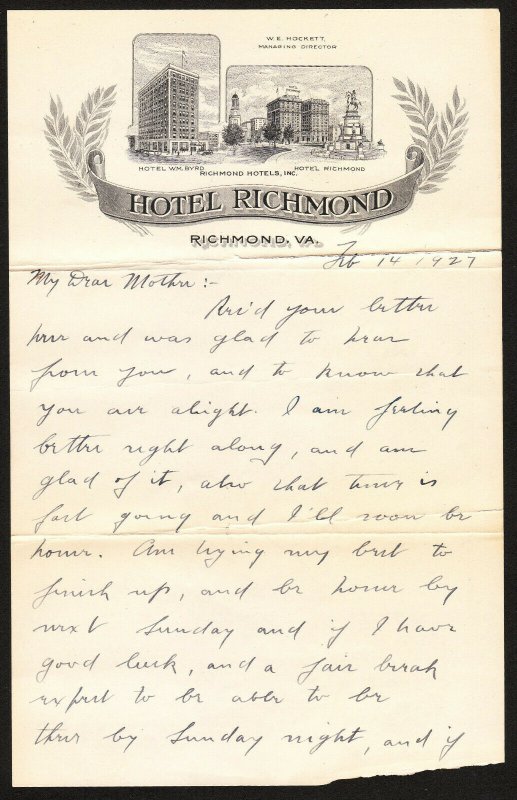 W. E. HOCKETT,
MANAGING DIRECTOR
HOTEL WM. BYRD
HOTEL RICHMOND
RICHMOND HOTELS, INC.
HOTEL RICHMOND
RICHMOND, VA.
Feb 14 1927
My Dear Mother:-
Rec'd your letter
here and was glad to hear
from you, and to know that
you are alright. I am feeling
better right along, and am
glad of it, also that time is
fast going and I'll soon be
home. Am trying my best to
finish up, and be home by
next Sunday and if I have
good luck, and a fair break
expect to be able to be
there by Sunday night, and if